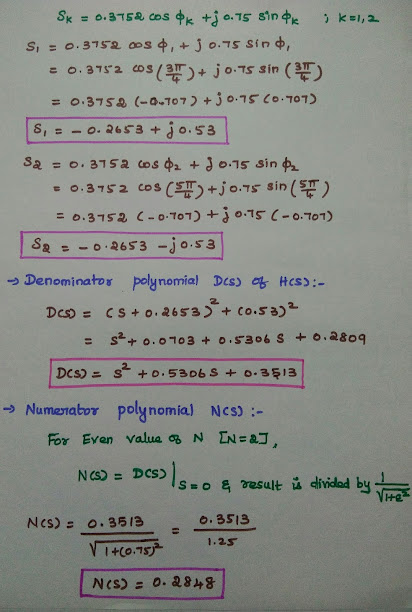 Sk = 0.3752 cos ϕk + j 0.75 sin ϕk ; k=1,2
S1 = 0.3752 cos ϕ1 + j 0.75 sin ϕ1
= 0.3752 cos (3π/4) + j 0.75 sin (3π/4)
= 0.3752 (-0.707) + j 0.75 (0.707)
S1 = -0.2653 + j 0.53
S2 = 0.3752 cos ϕ2 + j 0.75 sin ϕ2
= 0.3752 cos (5π/4) + j 0.75 sin (5π/4)
= 0.3752 (-0.707) + j 0.75 (-0.707)
S2 = -0.2653 - j 0.53
→ Denominator polynomial D(s) of H(s):-
D(s) = (s + 0.2653)² + (0.53)²
= s² + 0.0703 + 0.5306 s + 0.2809
D(s) = s² + 0.5306 s + 0.3513
→ Numerator polynomial N(s) :-
For Even value of N [N=2],
N(s) = D(s) |s=0 & result is divided by 1/√1+e²
N(s) = 0.3513/√1+(0.75)² = 0.3513/1.25
N(s) = 0.2848